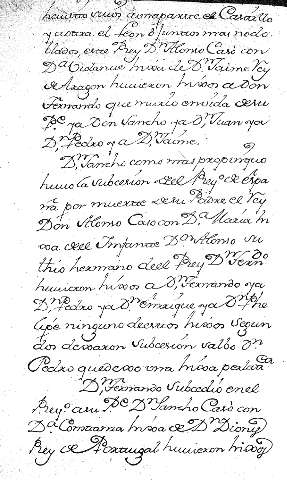 de una parte el Castillo
y otra el Leon
este Rey Dn. Alonso Casó con
Da. Violante hixa de Dn. Jaime Rey
de Aragon huuieron hixos a Don
Fernando que murio en vida de su
Pe. ya Don Sancho ya Dn. Juan ya
Dn. Pedro ya Dn. Jaime.
Dn. Sancho como mas propinquo
huuo la subcesion del Reyo. de Espa
ña por muerte de su Padre el Rey
Don Alonso Caso con Da. Maria hi
xa de el Infante Dn. Alonso su
thio hermano de el Rey Dn. Ferndo
huuieron hixos a Dn. Fernando ya
Dn. Pedro ya Dn. Enrique ya Dn. Phe
lipe ninguno de estos hixos segun
dos dexaron subcesion salbo Dn.
Pedro que dexo una hixa
Dn. Fernando subcedio en el
Reyo. a su Pe. Dn. Sancho Casó con
Da. Constanza hixa de Dn. Dionys
Rey de Portugal huuieron hixos